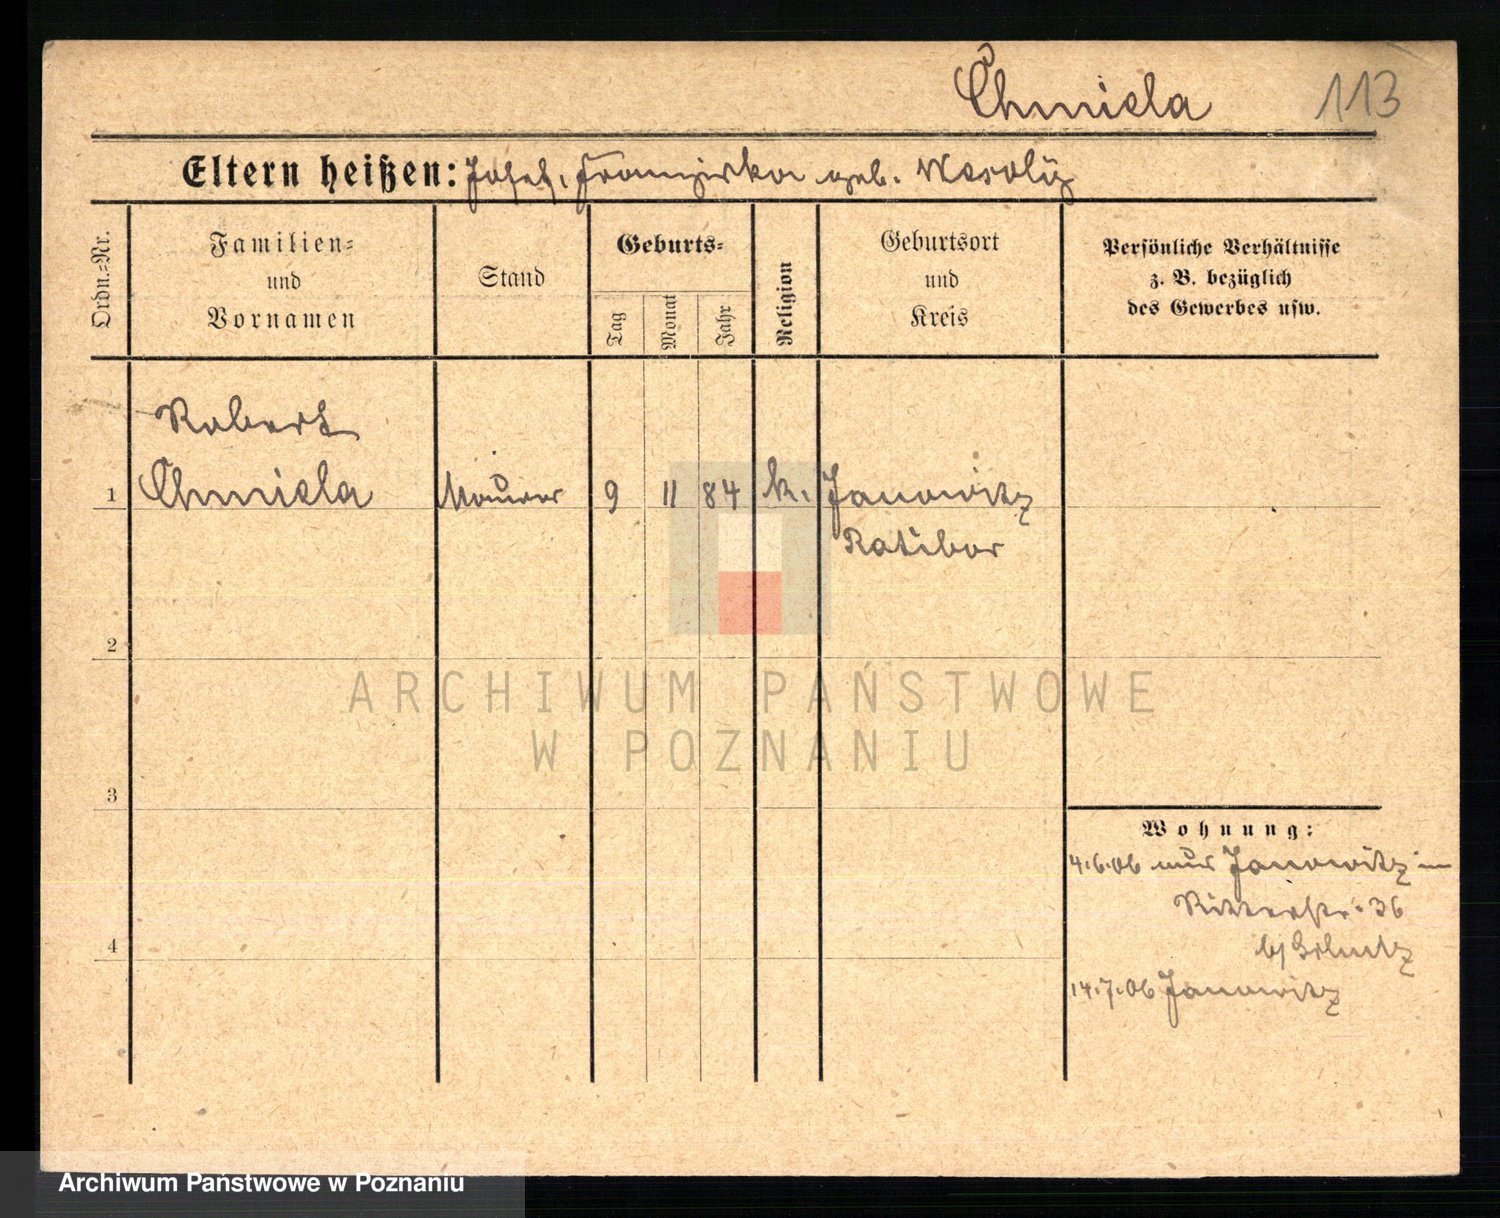 Chmiela 113
Eltern heißen: Josef, Franziska geb. Wesoly
Ordn.=Nr.
Familien=
und
Vornamen
Stand
Geburts=
Tag
Monat
Jahr
Religion
Geburtsort
und
Kreis
Persönliche Verhältnisse
z. B. bezüglich
des Gewerbes usw.
Robert
1 Chmiela Maurer 9 11 84 k. Janowitz
Ratibor
2
3
4
Wohnung:
4.6.06 aus Janowitz in
Ritterstr. 36
b/
14.7.06 Janowitz
ARCHIWUM PAŃSTWOWE
W POZNANIU
Archiwum Państwowe w Poznaniu